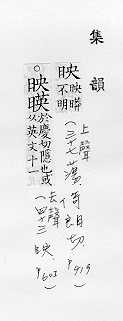 集韻
映 映 不明 上聲(三十七蕩、倚朗切、P419)
○映暎 於慶切隱也或从英文十一 去聲(四十三映、P603)